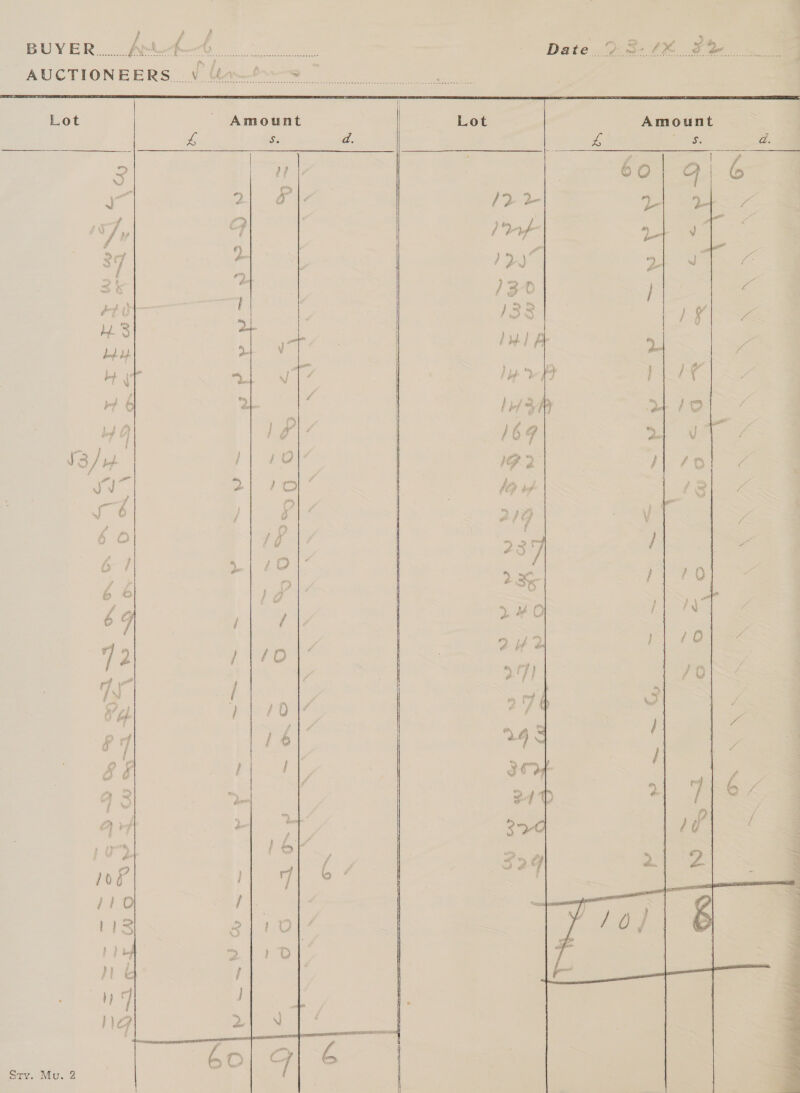 BUYER
Date 23-IX 32
AUCTIONEERS
Lot Amount Lot Amount
£ s. d. £ s. d.
3 11
5 2 8
9
37 2
38 2
40 1
43 2
44 2 5
45 2 5
46 2
49 18
53/4 1 10
55 2 10
56 1 8
60 18
61 2 10
66 18
69 1 1
72 1 10
75 1
84 1 10
87 16
88 1 1
93 2
94 2 2
102 16
108 1 7 6
110 1
113 3 10
114 2 10
116 1
117 1
119 2 5
60 9 6
60 9 6
122 2 2
124 2 5
125 2 5
130 1
133 18
141A 2
142A 1 18
143A 2 10
169 2 5
192 1 10
194 13
219 5
237 1
238 1 10
240 1 15
242 1 10
271 10
276 3
293 1
304 1
310 2 7 6
320 18
329 2 2
£ 101 8
Sty. Mu. 2